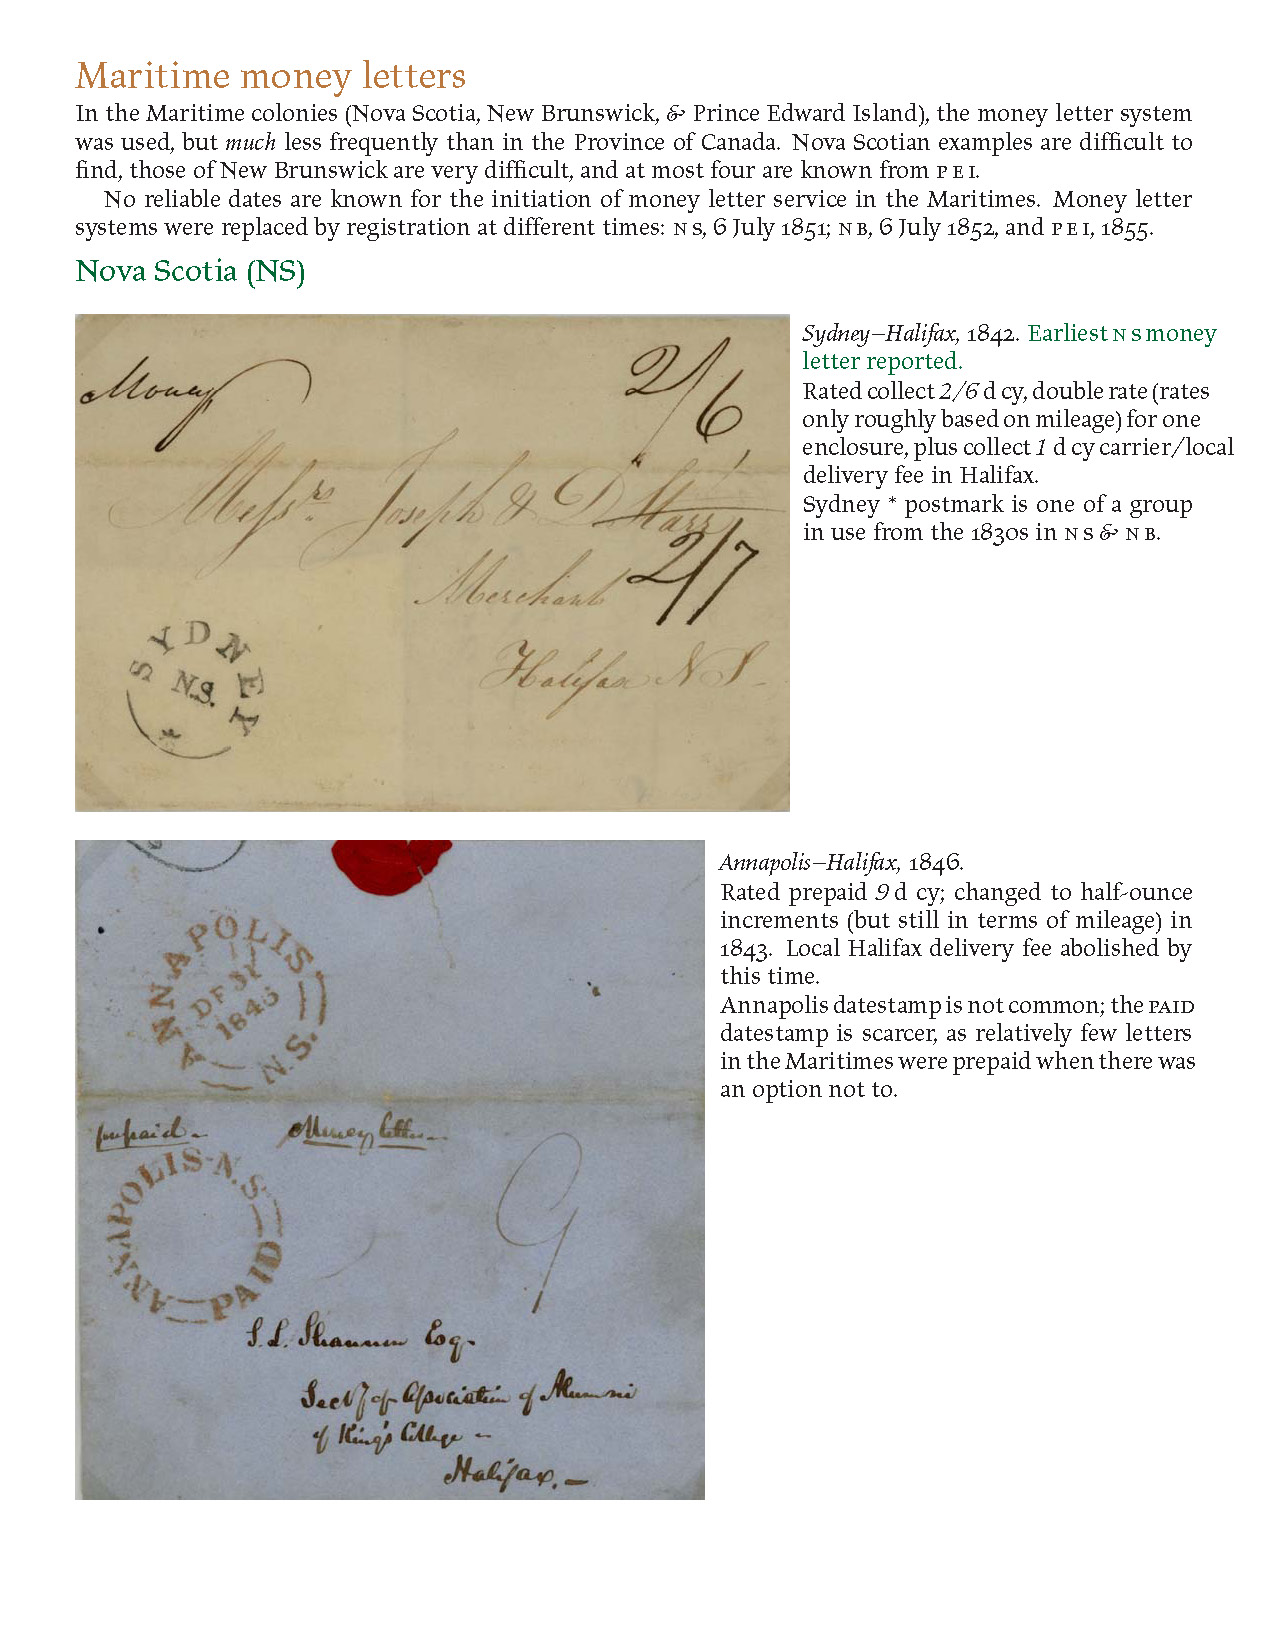 Maritime money letters
In the Maritime colonies (Nova Scotia, New Brunswick, & Prince Edward Island), the money letter system
was used, but much less frequently than in the Province of Canada. Nova Scotian examples are difficult to
find, those of New Brunswick are very difficult, and at most four are known from PEI.
No reliable dates are known for the initiation of money letter service in the Maritimes. Money letter
systems were replaced by registration at different times: NS, 6 July 1851; NB, 6 July 1852, and PEI, 1855.
Nova Scotia (NS)
Money
2/6
Messrs. Joseph & D Starr
2/7
Merchant
Halifax NS
SYDNEY
N.S.
*
Sydney–Halifax, 1842. Earliest NS money
letter reported.
Rated collect 2/6 d cy, double rate (rates
only roughly based on mileage) for one
enclosure, plus collect 1 d cy carrier/local
delivery fee in Halifax.
Sydney * postmark is one of a group
in use from the 1830s in NS & NB.
ANNAPOLIS
N.S.
prepaid
Money letter
ANNAPOLIS-N.S
PAID
9
S.L. Shannon Esq
Secty of Association of Alumni
of King's College
Halifax.
Annapolis–Halifax, 1846.
Rated prepaid 9 d cy; changed to half-ounce
increments (but still in terms of mileage) in
1843. Local Halifax delivery fee abolished by
this time.
Annapolis datestamp is not common; the PAID
datestamp is scarcer, as relatively few letters
in the Maritimes were prepaid when there was
an option not to.